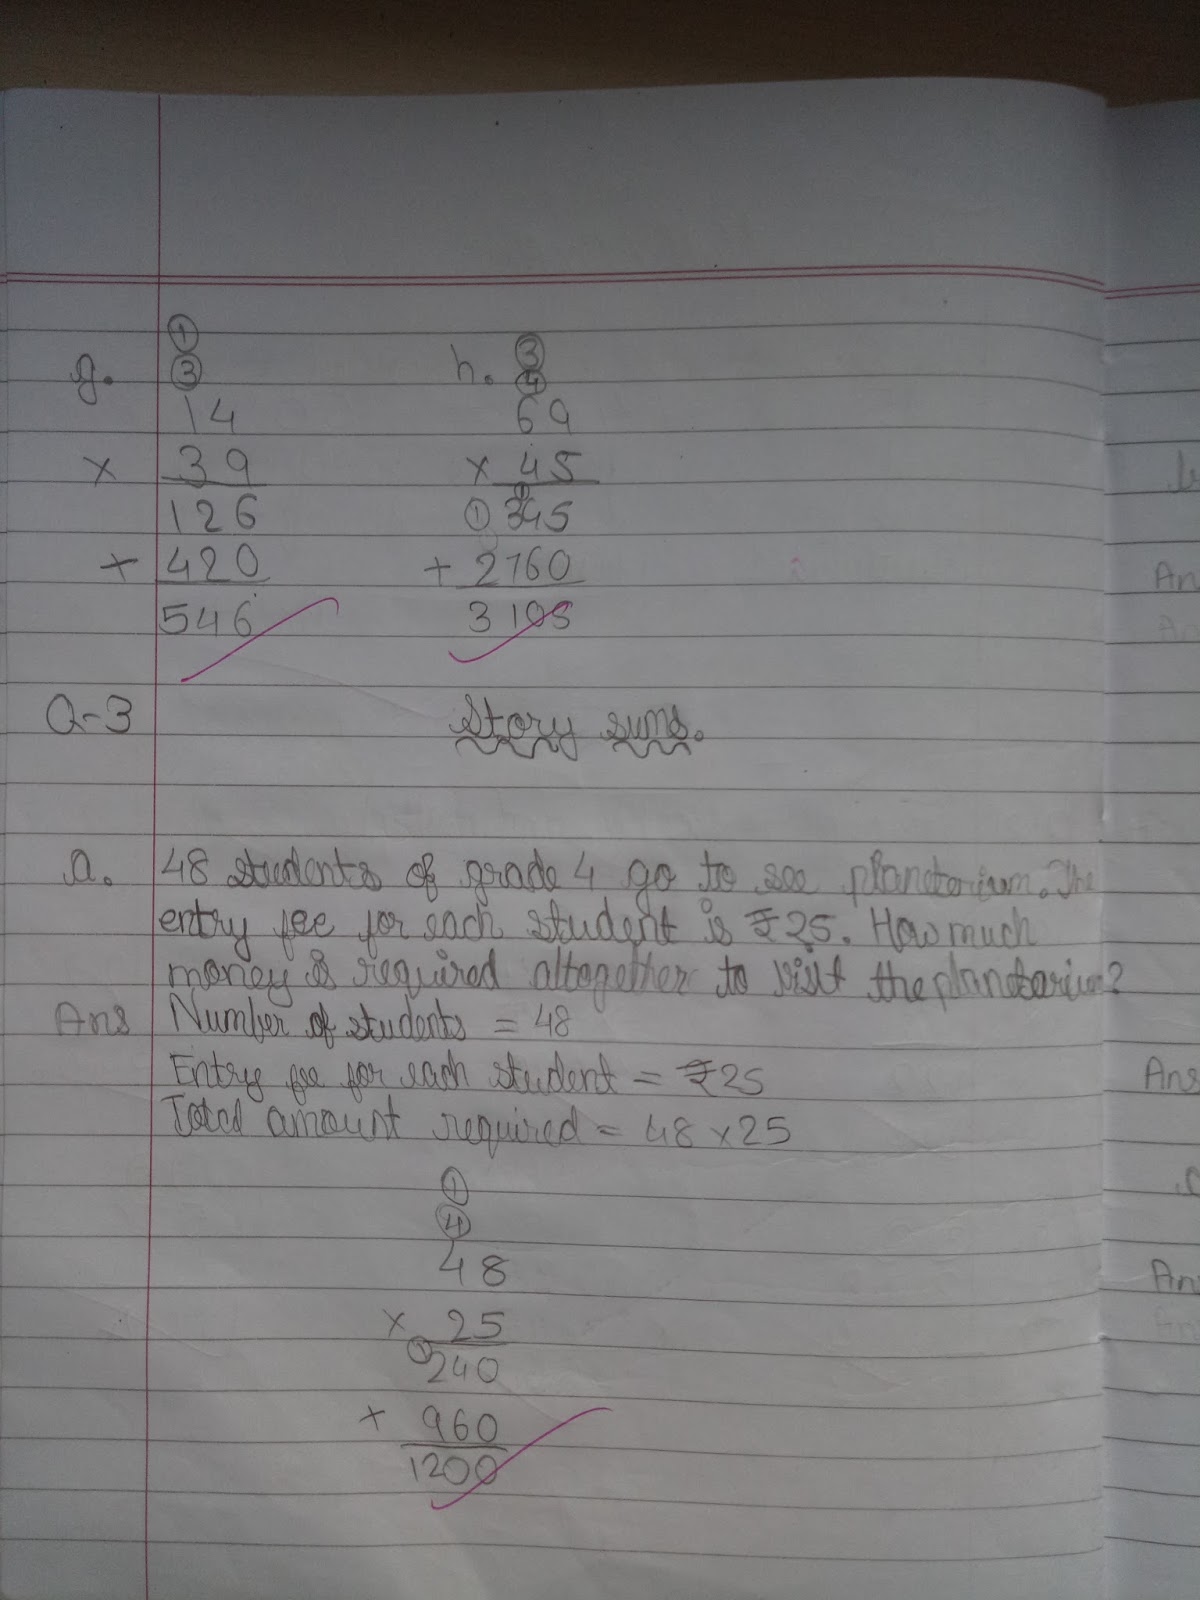 g. ① h. ③
③ ④
14 69
× 39 × 45
126 ① 345
+ 420 + 2760
546 3105
Q-3 Story sums.
a. 48 students of grade 4 go to see planetarium. The
entry fee for each student is ₹25. How much
money is required altogether to visit the planetarium?
Ans Number of students = 48
Entry fee for each student = ₹25
Total amount required = 48 × 25
①
④
48
× 25
① 240
+ 960
1200
An
An
Ans
An